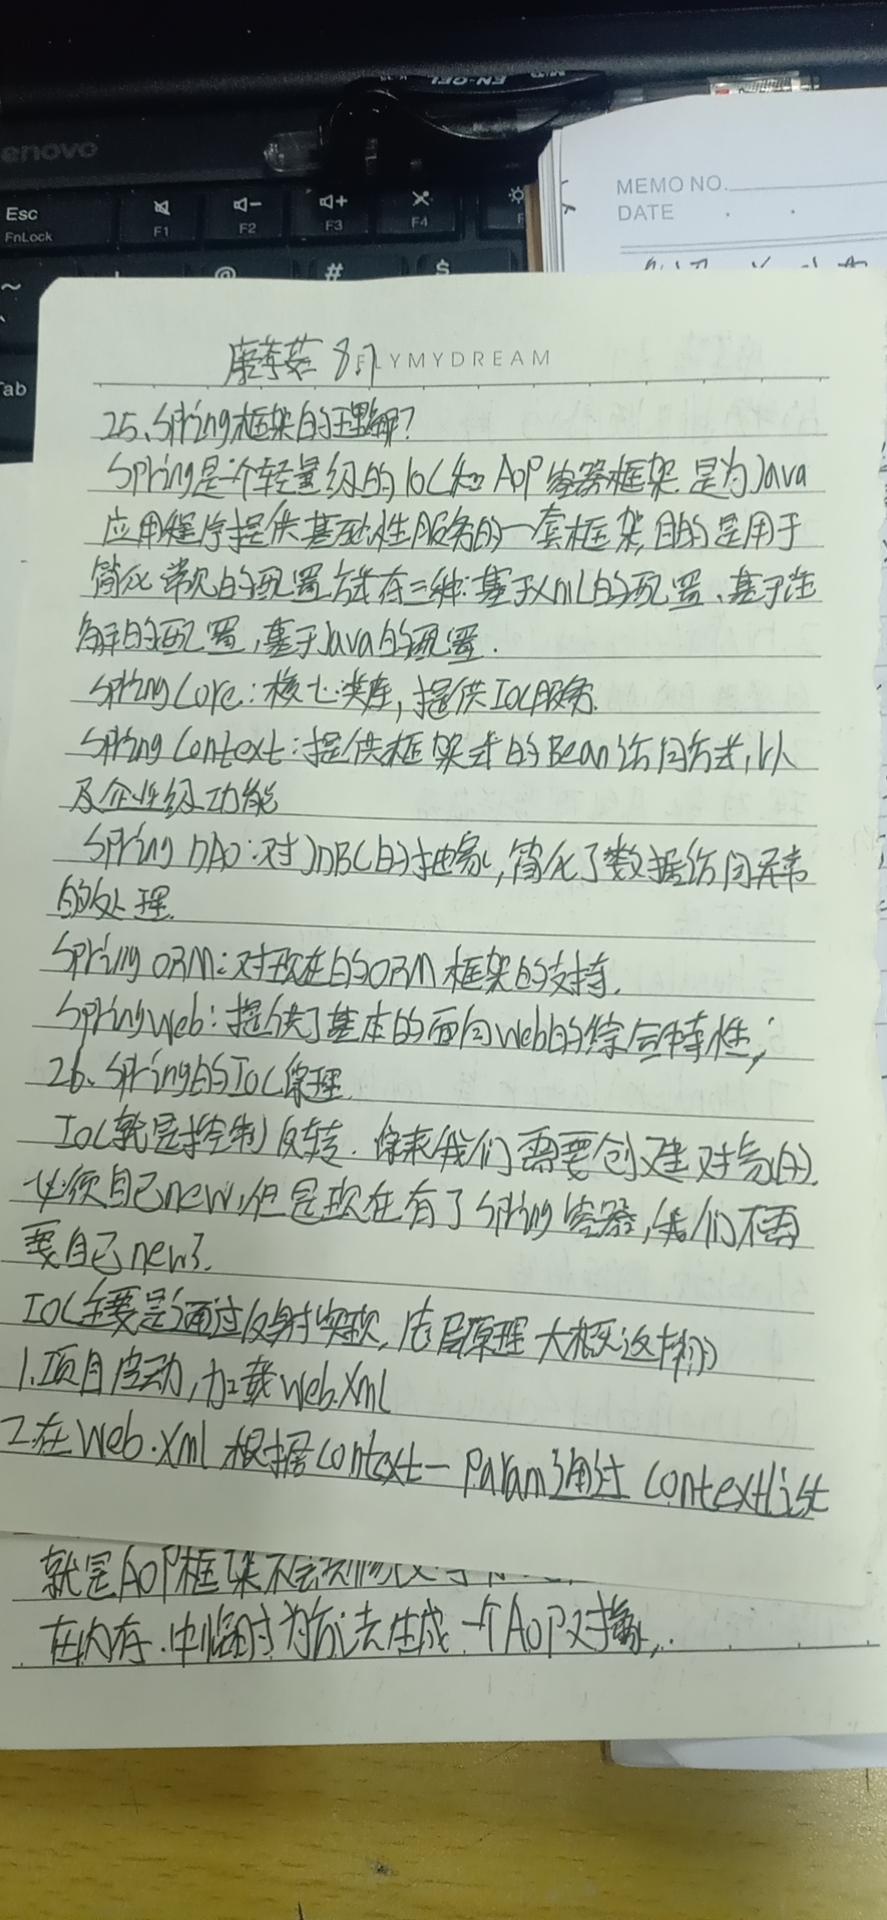 enovo
Esc
FnLock
F1
F2
F3
F4
#
$
Tab
MEMO NO.
DATE
8.7
FLYMYDREAM
25、Spring框架的理解?
Spring是一个轻量级的IOC和AOP容器框架.是为Java
应用程序提供基础性服务的一套框架,目的是用于
简化 常见的配置方式有三种:基于Xml的配置、基于注
解的配置,基于Java的配置.
Spring Core:核心类库,提供IOC服务.
Spring Context:提供框架式的Bean访问方式,以
及企业级功能
Spring DAO:对JDBC的抽象,简化了数据访问异常
的处理.
Spring ORM:对现在的ORM框架的支持.
SpringWeb:提供了基本的面向Web的综合特性;
26、Spring的IOC原理.
IOC就是控制反转.原来我们需要创建对象的.
必须自己new,但是现在有了Spring容器,我们不再
要自己new了.
IOC主要是通过反射实现,底层原理大概这样的
1.项目启动,加载Web.Xml
2.在Web.Xml根据Context-Param通过ContextList
就是AOP框架不会
在内存中临时为方法生成一个AOP对象,.